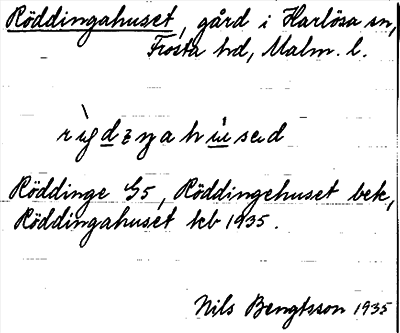 Röddingahuset, gård i Harlösa sn,
Frosta hd, Malm. l.
Röddinge G5, Röddingehuset bek,
Röddingahuset kb 1935.
Nils Bengtsson 1935